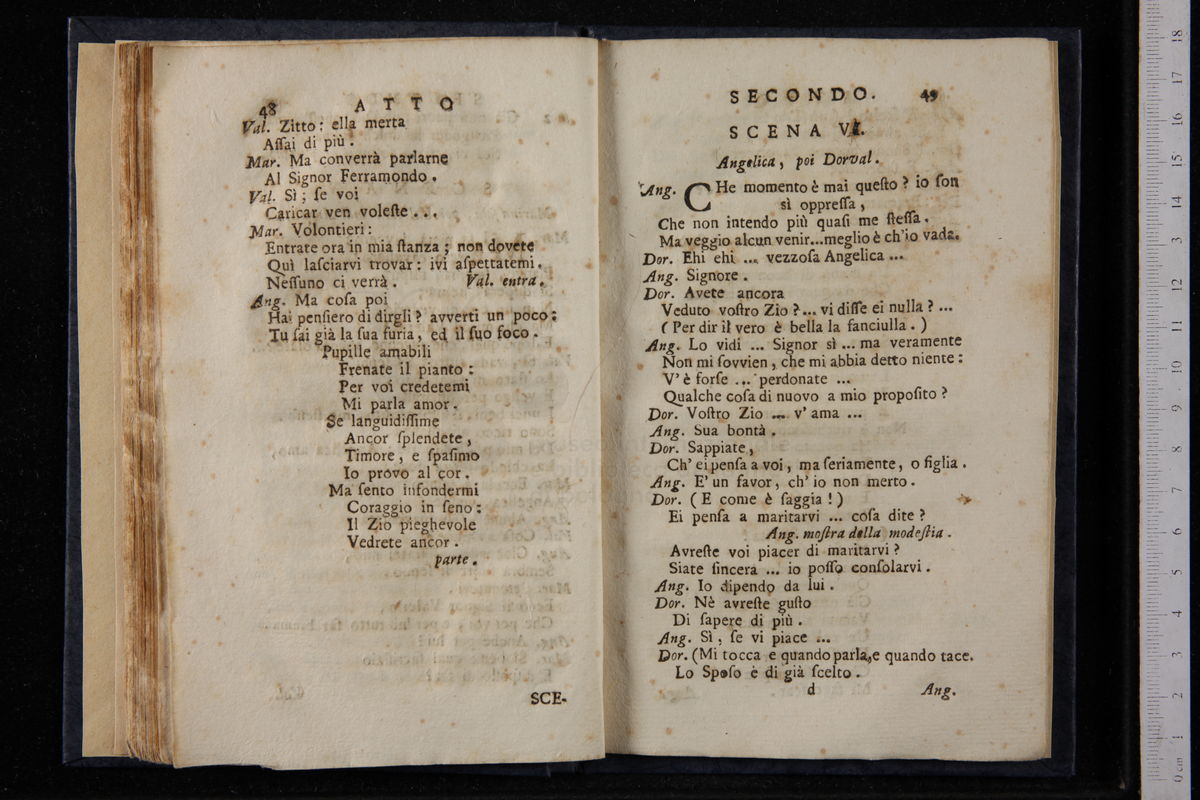 48 ATTO
Val. Zitto: ella merta
Aſſai di più.
Mar. Ma converrà parlarne
Al Signor Ferramondo.
Val. Sì; ſe voi
Caricar ven voleſte...
Mar. Volontieri:
Entrate ora in mia ſtanza; non dovete
Quì laſciarvi trovar: ivi aſpettatemi.
Neſſuno ci verrà. Val. entra.
Ang. Ma coſa poi
Hai penſiero di dirgli? avverti un poco:
Tu ſai già la ſua furia, ed il ſuo foco.
Pupille amabili
Frenate il pianto:
Per voi credetemi
Mi parla amor.
Se languidiſſime
Ancor ſplendete,
Timore, e ſpaſimo
Io provo al cor.
Ma ſento infondermi
Coraggio in ſeno:
Il Zio pieghevole
Vedrete ancor.
parte.
SCE-
SECONDO. 49
SCENA VI.
Angelica, poi Dorval.
Ang. CHe momento è mai queſto? io ſon
sì oppreſſa,
Che non intendo più quaſi me ſteſſa.
Ma veggio alcun venir...meglio è ch'io vada.
Dor. Ehi ehi ... vezzoſa Angelica ...
Ang. Signore.
Dor. Avete ancora
Veduto voſtro Zio?... vi diſſe ei nulla?...
(Per dir il vero è bella la fanciulla.)
Ang. Lo vidi ... Signor sì ... ma veramente
Non mi ſovvien, che mi abbia detto niente:
V'è forſe ... perdonate ...
Qualche coſa di nuovo a mio propoſito?
Dor. Voſtro Zio ... v'ama ...
Ang. Sua bontà.
Dor. Sappiate,
Ch'ei penſa a voi, ma ſeriamente, o figlia.
Ang. E'un favor, ch'io non merto.
Dor. (E come è ſaggia!)
Ei penſa a maritarvi ... coſa dite?
Ang. moſtra della modeſtia.
Avreſte voi piacer di maritarvi?
Siate ſincera ... io poſſo conſolarvi.
Ang. Io dipendo da lui.
Dor. Nè avreſte guſto
Di ſapere di più.
Ang. Sì, ſe vi piace ...
Dor. (Mi tocca e quando parla, e quando tace.
Lo Spoſo è di già ſcelto.
d Ang.